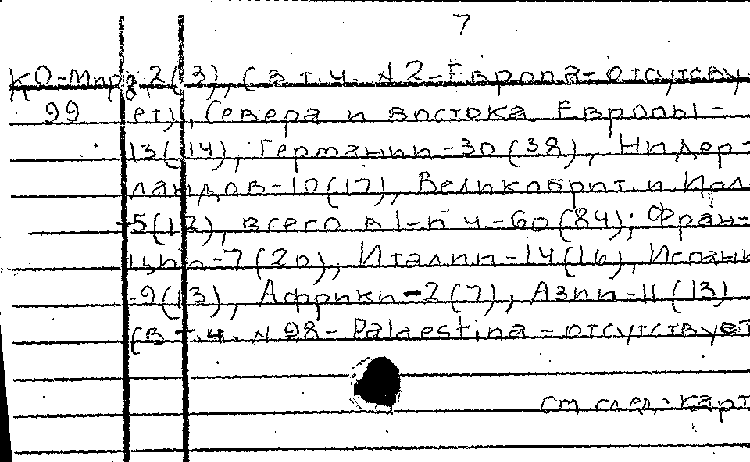 7
КО-Мир 2(3), (в т.ч. N2-Европа-отсутству
99 ет), Севера и востока Европы-
13(14), Германии-30(38), Нидер-
ландов-10(17), Великобрит. и Ирл.
-5(12), всего в 1-й ч-60(84); Фран-
ции-7(20), Италии-14(16), Испани
-9(13), Африки-2(7), Азии-11(13)
(в т.ч. N98-Palaestina-отсутствует
см след. карт